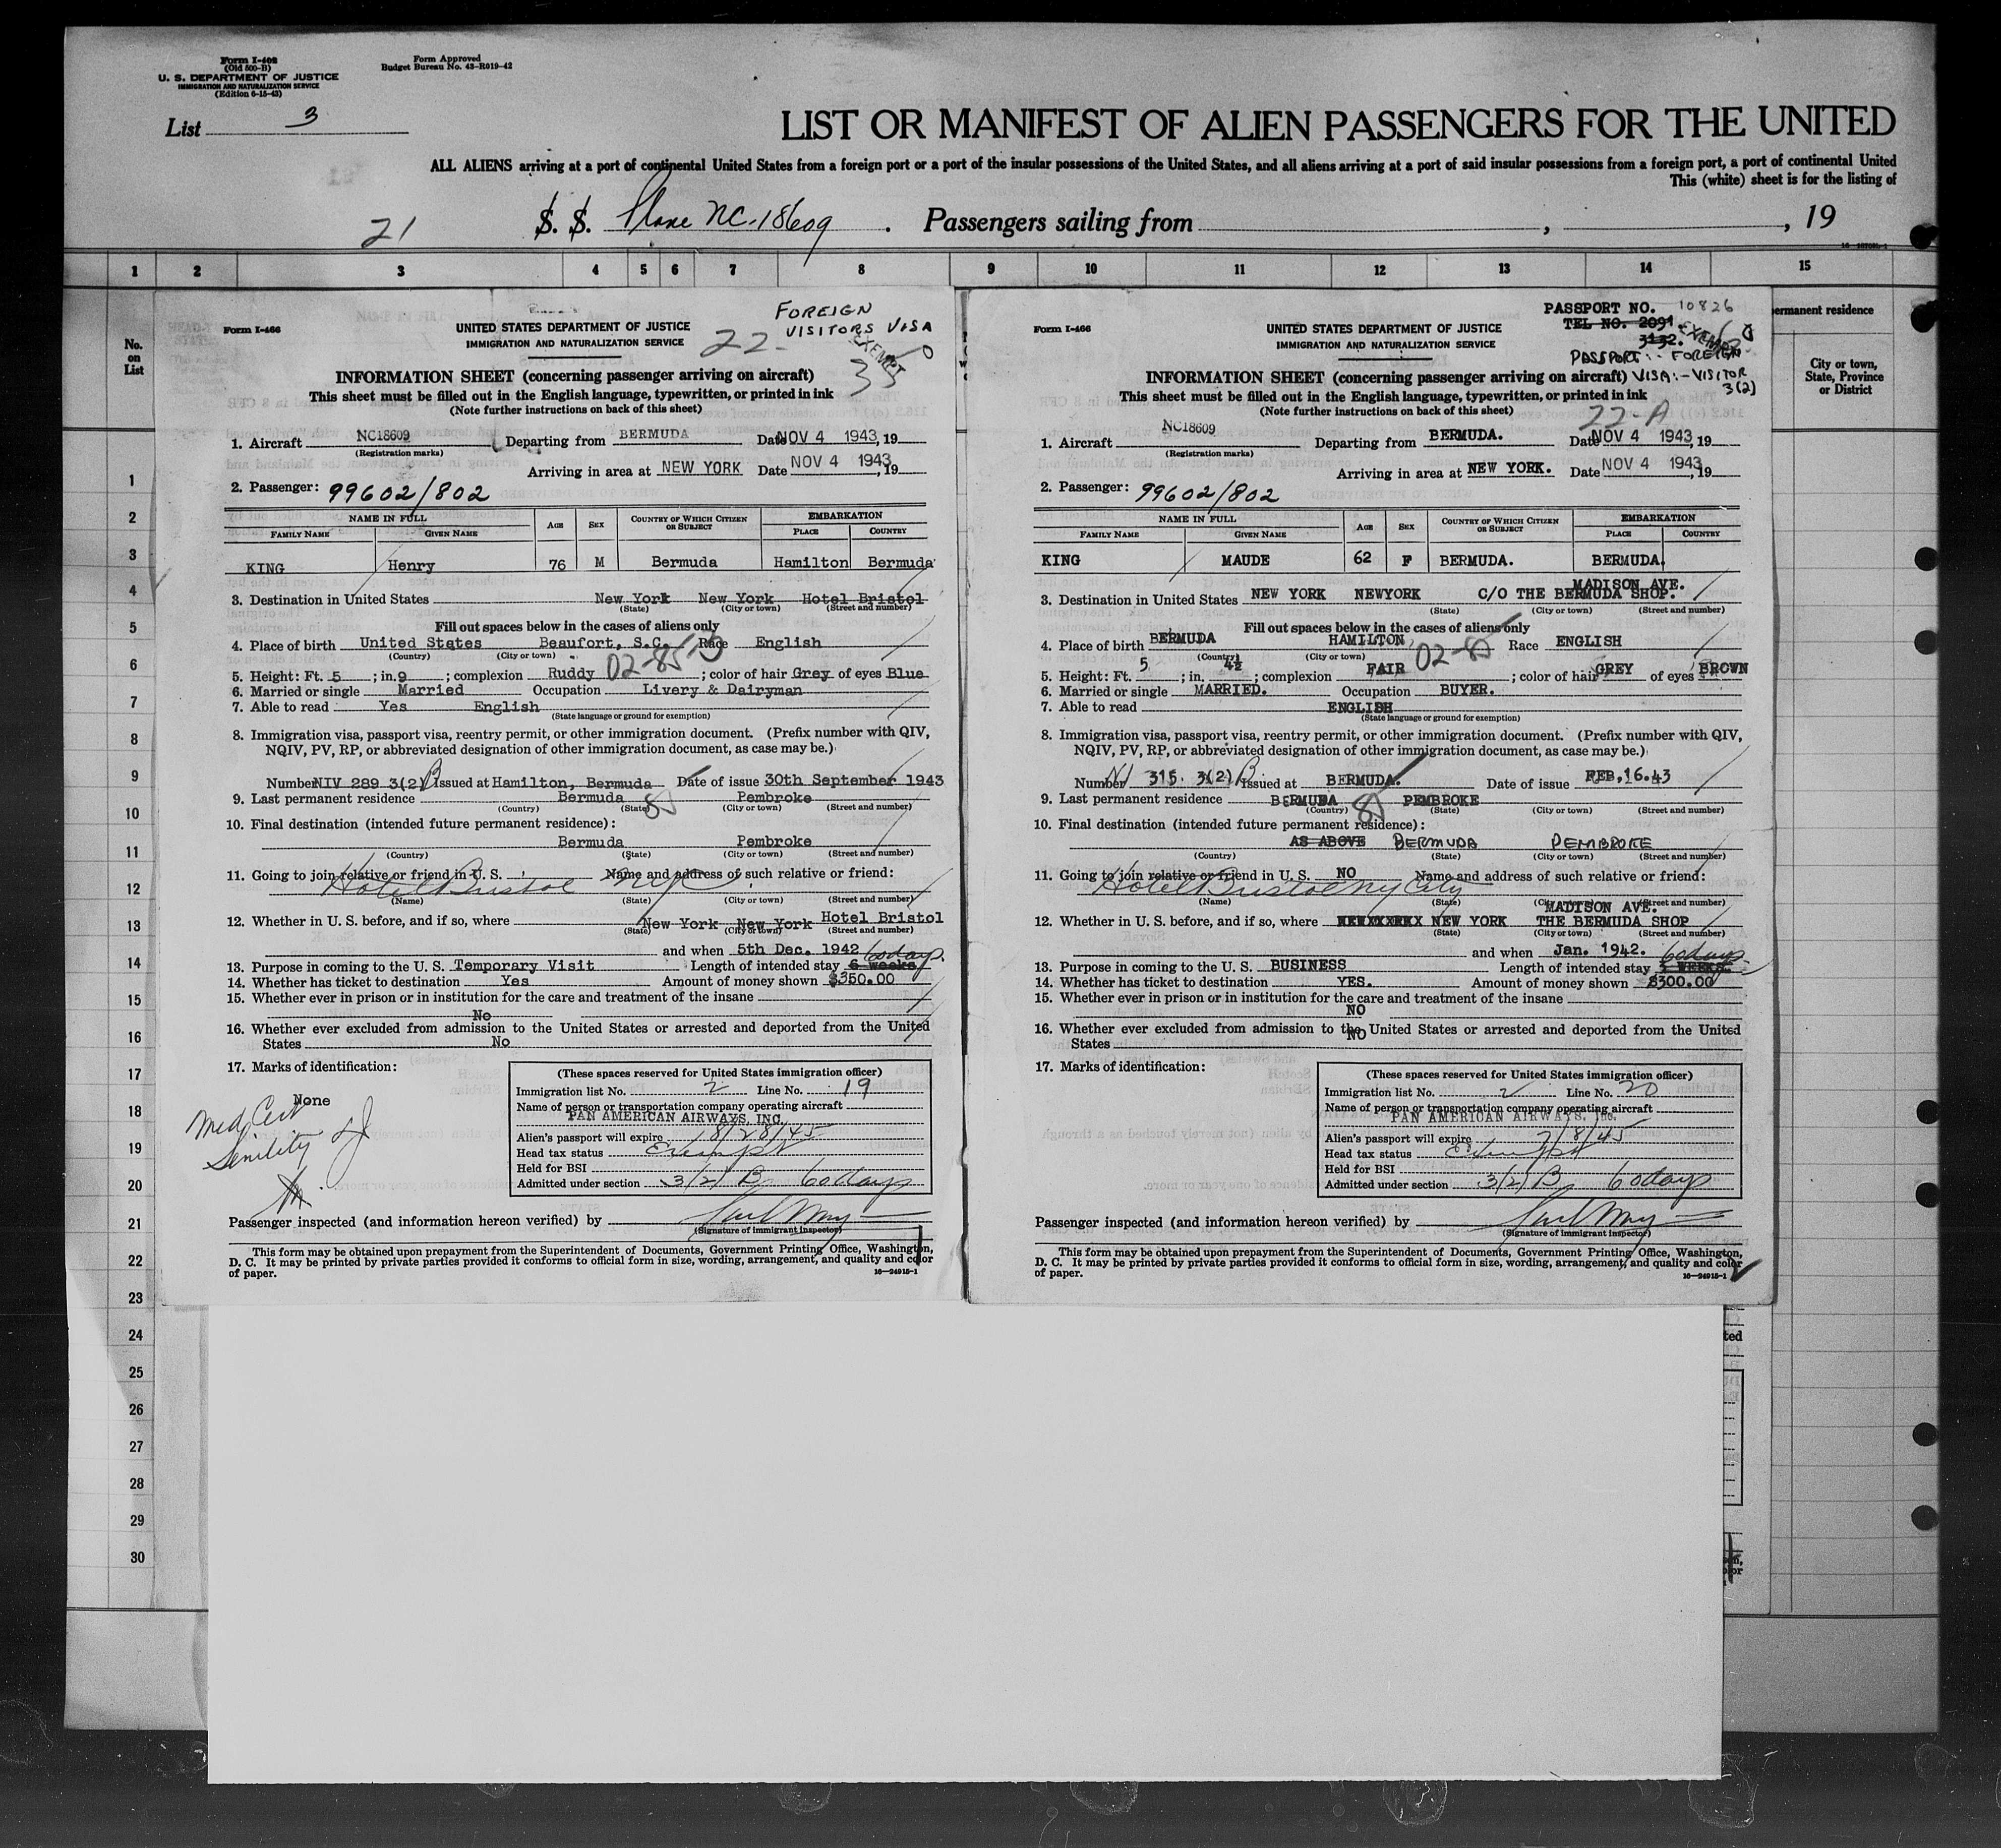 Form I-402
(Old 500-B)
U. S. DEPARTMENT OF JUSTICE
IMMIGRATION AND NATURALIZATION SERVICE
(Edition 6-15-43)
Form Approved
Budget Bureau No. 43-R019-42
List 3
LIST OR MANIFEST OF ALIEN PASSENGERS FOR THE UNITED
ALL ALIENS arriving at a port of continental United States from a foreign port or a port of the insular possessions of the United States, and all aliens arriving at a port of said insular possessions from a foreign port, a port of continental United
This (white) sheet is for the listing of
21 S. S. Plane NC-18609. Passengers sailing from , , 19
1 2 3 4 5 6 7 8 9 10 11 12 13 14 15
No. on List
1
2
3
4
5
6
7
8
9
10
11
12
13
14
15
16
17
18
19
20
21
22
23
24
25
26
27
28
29
30
Form I-466
UNITED STATES DEPARTMENT OF JUSTICE
IMMIGRATION AND NATURALIZATION SERVICE
22-
FOREIGN
VISITORS VISA
EXEMPT
INFORMATION SHEET (concerning passenger arriving on aircraft)
This sheet must be filled out in the English language, typewritten, or printed in ink
(Note further instructions on back of this sheet)
1. Aircraft NC18609 Departing from BERMUDA Date NOV 4 1943, 19
(Registration marks)
Arriving in area at NEW YORK Date NOV 4 1943, 19
2. Passenger: 99602/802
NAME IN FULL AGE SEX COUNTRY OF WHICH CITIZEN OR SUBJECT EMBARKATION
FAMILY NAME GIVEN NAME PLACE COUNTRY
KING Henry 76 M Bermuda Hamilton Bermuda
3. Destination in United States New York New York Hotel Bristol
(State) (City or town) (Street and number)
Fill out spaces below in the cases of aliens only
4. Place of birth United States Beaufort, S.C. Race English
(Country) (City or town) 02-85-5
5. Height: Ft. 5; in. 9; complexion Ruddy; color of hair Grey of eyes Blue
6. Married or single Married Occupation Livery & Dairyman
7. Able to read Yes English
(State language or ground for exemption)
8. Immigration visa, passport visa, reentry permit, or other immigration document. (Prefix number with QIV,
NQIV, PV, RP, or abbreviated designation of other immigration document, as case may be.)
Number NIV 289 3(2)B Issued at Hamilton, Bermuda Date of issue 30th September 1943
9. Last permanent residence Bermuda 85 Pembroke
(Country) (State) (City or town) (Street and number)
10. Final destination (intended future permanent residence):
Bermuda Pembroke
(Country) (State) (City or town) (Street and number)
11. Going to join relative or friend in U. S. Name and address of such relative or friend:
Hotel Bristol NYC
(Name) (State) (City or town) (Street and number)
12. Whether in U. S. before, and if so, where New York New York Hotel Bristol
(State) (City or town) (Street and number)
and when 5th Dec. 1942 60 days
13. Purpose in coming to the U. S. Temporary Visit Length of intended stay 6 weeks
14. Whether has ticket to destination Yes Amount of money shown $350.00
15. Whether ever in prison or in institution for the care and treatment of the insane
No
16. Whether ever excluded from admission to the United States or arrested and deported from the United
States No
17. Marks of identification:
None
Med Cert
Senility
(These spaces reserved for United States immigration officer)
Immigration list No. 2 Line No. 19
Name of person or transportation company operating aircraft
PAN AMERICAN AIRWAYS, INC.
Alien's passport will expire 8/28/45
Head tax status Exempt
Held for BSI
Admitted under section 3(2) B 60 days
Passenger inspected (and information hereon verified) by
(Signature of immigrant inspector)
This form may be obtained upon prepayment from the Superintendent of Documents, Government Printing Office, Washington,
D. C. It may be printed by private parties provided it conforms to official form in size, wording, arrangement, and quality and color
of paper.
16—24915-1
Form I-466
UNITED STATES DEPARTMENT OF JUSTICE
IMMIGRATION AND NATURALIZATION SERVICE
PASSPORT NO. 10826
TEL NO. 2091
3132.
EXEMPT
PASSPORT:- FOREIGN
VISA:- VISITOR
3(2)
INFORMATION SHEET (concerning passenger arriving on aircraft)
This sheet must be filled out in the English language, typewritten, or printed in ink
(Note further instructions on back of this sheet)
22-A
1. Aircraft NC18609 Departing from BERMUDA. Date NOV 4 1943, 19
(Registration marks)
Arriving in area at NEW YORK. Date NOV 4 1943, 19
2. Passenger: 99602/802
NAME IN FULL AGE SEX COUNTRY OF WHICH CITIZEN OR SUBJECT EMBARKATION
FAMILY NAME GIVEN NAME PLACE COUNTRY
KING MAUDE 62 F BERMUDA. BERMUDA.
MADISON AVE.
3. Destination in United States NEW YORK NEWYORK C/O THE BERMUDA SHOP.
(State) (City or town) (Street and number)
Fill out spaces below in the cases of aliens only
4. Place of birth BERMUDA HAMILTON Race ENGLISH
(Country) (City or town) 02-85
5. Height: Ft. 5; in. 4½; complexion FAIR; color of hair GREY of eyes BROWN
6. Married or single MARRIED. Occupation BUYER.
7. Able to read ENGLISH
(State language or ground for exemption)
8. Immigration visa, passport visa, reentry permit, or other immigration document. (Prefix number with QIV,
NQIV, PV, RP, or abbreviated designation of other immigration document, as case may be.)
Number NI 315. 3(2)B Issued at BERMUDA. Date of issue FEB, 16. 43
9. Last permanent residence BERMUDA 85 PEMBROKE
(Country) (State) (City or town) (Street and number)
10. Final destination (intended future permanent residence):
AS ABOVE BERMUDA PEMBROKE
(Country) (State) (City or town) (Street and number)
11. Going to join relative or friend in U. S. NO Name and address of such relative or friend:
Hotel Bristol NY City
(Name) (State) (City or town) (Street and number)
MADISON AVE.
12. Whether in U. S. before, and if so, where NEW YORK THE BERMUDA SHOP
(State) (City or town) (Street and number)
and when Jan. 1942. 60 days
13. Purpose in coming to the U. S. BUSINESS Length of intended stay WEEKS.
14. Whether has ticket to destination YES. Amount of money shown $300.00
15. Whether ever in prison or in institution for the care and treatment of the insane
NO
16. Whether ever excluded from admission to the United States or arrested and deported from the United
States NO
17. Marks of identification:
(These spaces reserved for United States immigration officer)
Immigration list No. 2 Line No. 20
Name of person or transportation company operating aircraft
PAN AMERICAN AIRWAYS, INC.
Alien's passport will expire 7/8/45
Head tax status Exempt
Held for BSI
Admitted under section 3(2) B 60 days
Passenger inspected (and information hereon verified) by
(Signature of immigrant inspector)
This form may be obtained upon prepayment from the Superintendent of Documents, Government Printing Office, Washington,
D. C. It may be printed by private parties provided it conforms to official form in size, wording, arrangement, and quality and color
of paper.
16—24915-1
ermanent residence
City or town,
State, Province
or District